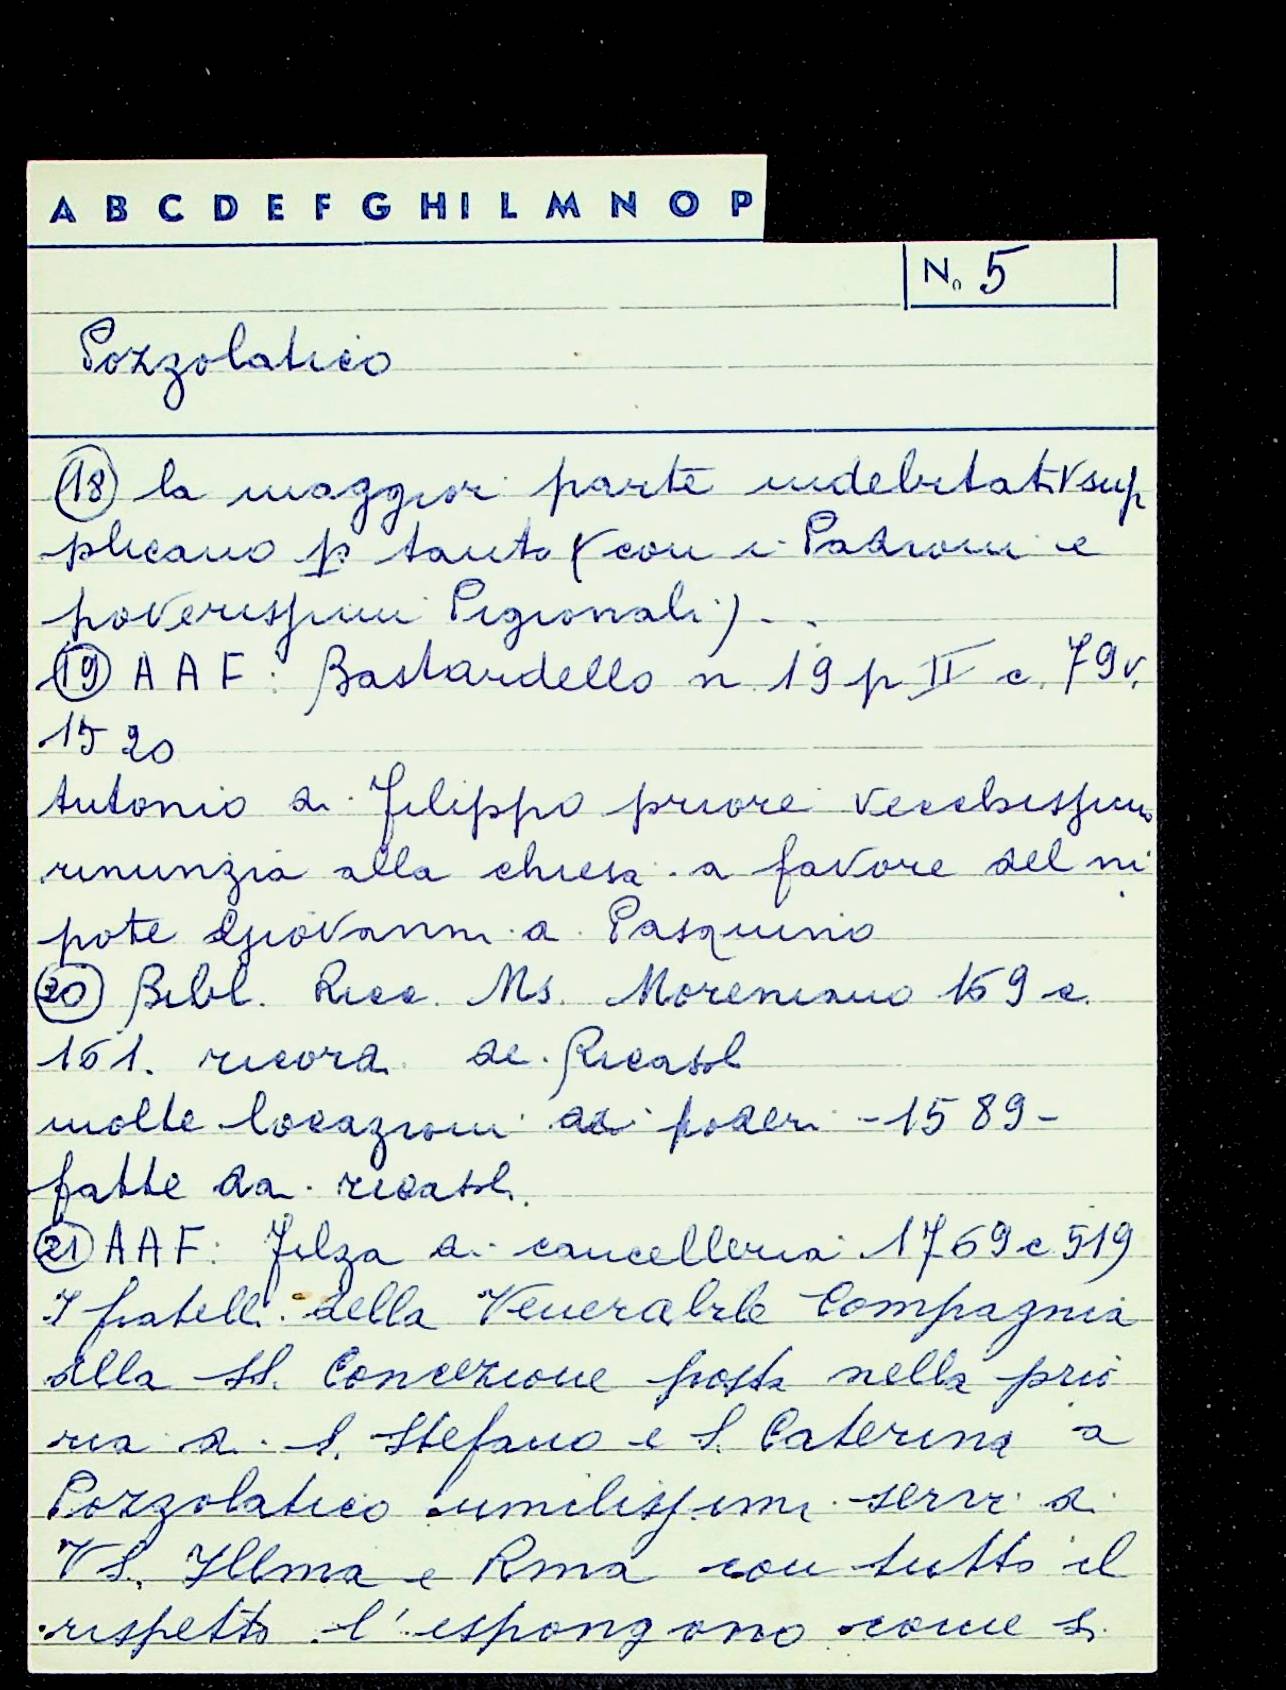 A B C D E F G H I L M N O P
N. 5
Pozzolatico
(18) la maggior parte indebitati sup
plicano p. tanto (con i Padroni e
poverissimi Pigionali) . .
(19) A A F: Bastardello n 19 p II c. 79v.
1520
Antonio di Filippo priore vecchissimo
rinunzia alla chiesa a favore del ni
pote Giovanni di Pasquino
(20) Bibl. Ricc. Ms. Moreniano 169 c.
161. ricord. de Ricasol
molte locazioni di poderi - 1589 -
fatte da ricasoli.
(21) A A F: Filza di cancelleria 1769 c 519
I fratelli della Venerabile Compagnia
della SS. Concezione posta nella prio
ria di S. Stefano e S. Caterina a
Pozzolatico umilissimi servi di
VS. Illma e Rma con tutto il
rispetto l'espongono come si